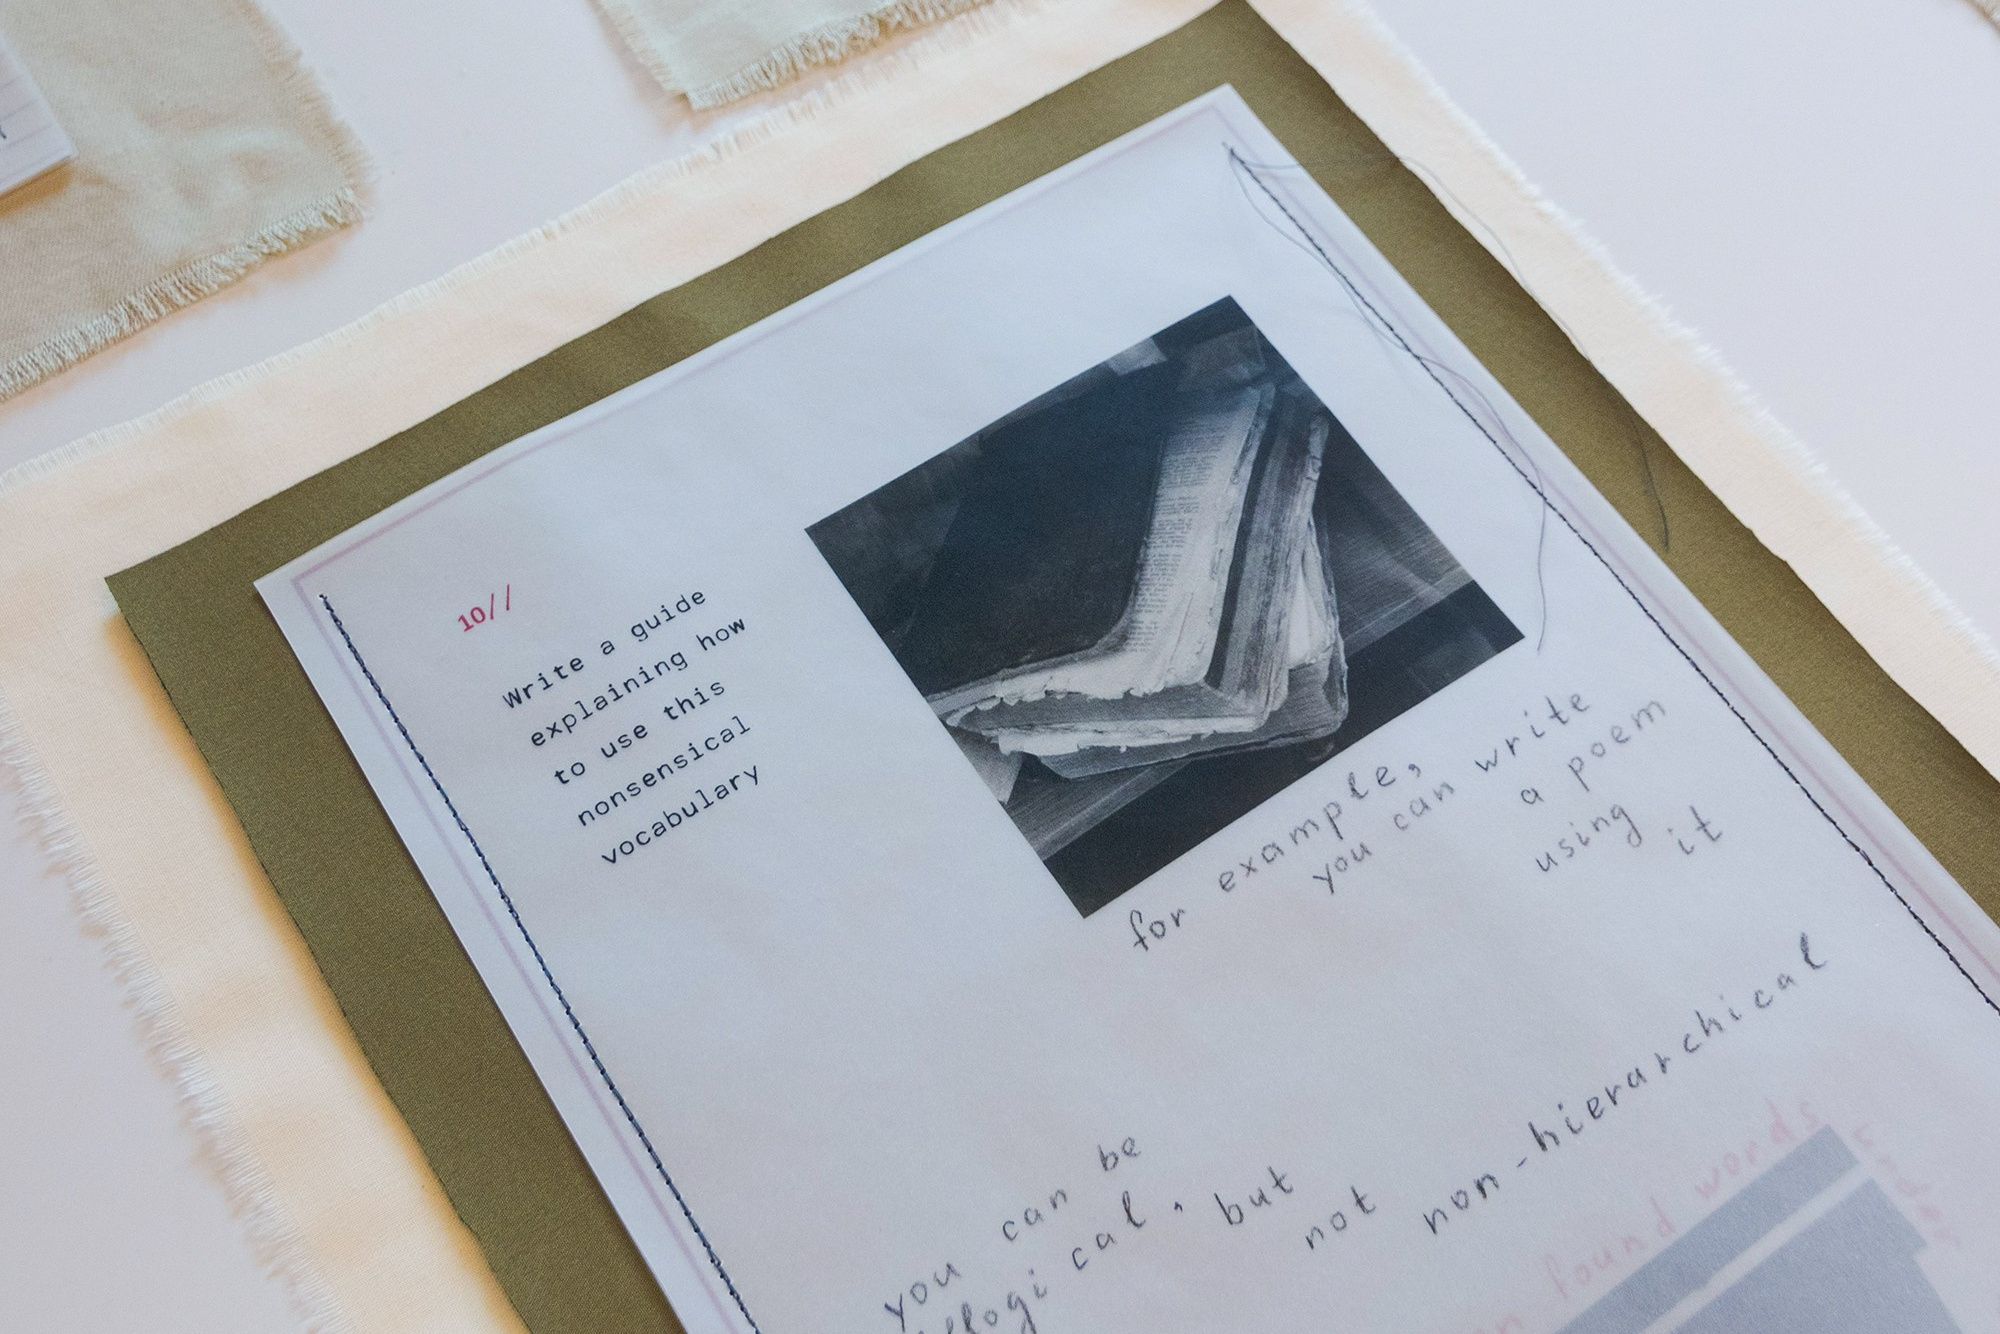 10//
Write a guide
explaining how
to use this
nonsensical
vocabulary
for example,
you can write
a poem
using
it
you can be
illogi cal, but
not non-hierarchical
found words